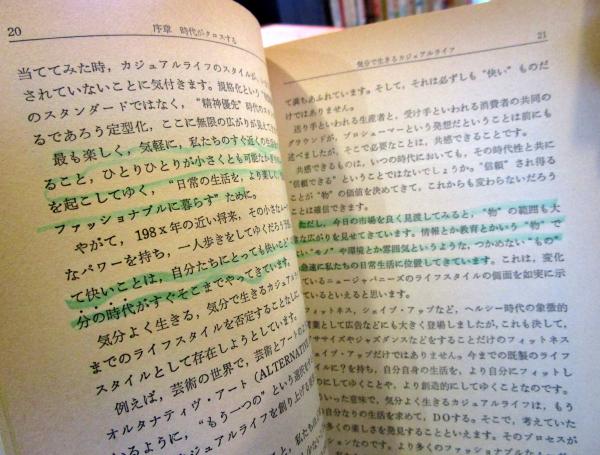 20
序章 時代がクロスする
当ててみた時，カジュアルライフのスタイルが，
されていないことに気付きます。規格化という
のスタンダードではなく，“精神優先”時代の
るであろう定型化，ここに無限の広がりが見えて
最も楽しく，気軽に，私たちのすぐ近くの生活
ること，ひとりひとりが小さくとも可能な
を起こしてゆく，“日常の生活を，より楽しく
ファッショナブルに暮らす”ために。
やがて，198x年の近い将来，その小さな
なパワーを持ち，一人歩きをしてゆくだろう
て快いことは，自分たちにとっても快いと
分の時代がすぐそこまでやってきています。
気分よく生きる，気分で生きるカジュアル
までのライフスタイルを否定することなしに
スタイルとして存在しようとしています。
例えば，芸術の世界で，芸術とアートの
オルタナティヴ・アート（ALTERNATIVE
かるように，“もう一つの”という選択
カジュアルライフを創り上げ
21
気分で生きるカジュアルライフ
て満ちあふれています。そして，それは必ずしも“快い”ものだ
けではありません。
送り手といわれる生産者と，受け手といわれる消費者の共同の
グラウンドが，プロシューマーという発想だということは前にも
述べましたが，そこで必要なことは，共感できることです。
共感できるものは，いつの時代においても，その時代性と共に
“信頼できる”ということではないでしょうか。“信頼”され得る
ことが“物”の価値を決めてきて，これからも変わらないだろう
ことは確信できます。
ただし，今日の市場を良く見渡してみると，“物”の範囲も大
きな広がりを見せてきています。情報とか教育とかいう“物”で
ない“モノ”や環境とか雰囲気というような，つかめない“もの”
急速に私たちの日常生活に位置してきています。これは，変化
ているニュージャパニーズのライフスタイルの側面を如実に示
しているといえると思います。
フィットネス，シェイプ・アップなど，ヘルシー時代の象徴的
言葉として広告などにも大きく登場しましたが，これも決して，
ササイズやジャズダンスなどをすることだけのフィットネス
シェイプ・アップだけではありません。今までの既製のライフ
ルに？を持ち，自分自身の生活を，より自分にフィットし
のにしてゆくことや，より創造的にしてゆくことなのです。
いった意味で，気分よく生きるカジュアルライフは，もう
自分なりの生活を求めて，DOする。そこで，考えていた
多くの楽しさを発見することといえます。そのプロセスが
ションなのです。より多くのファッショナブルな